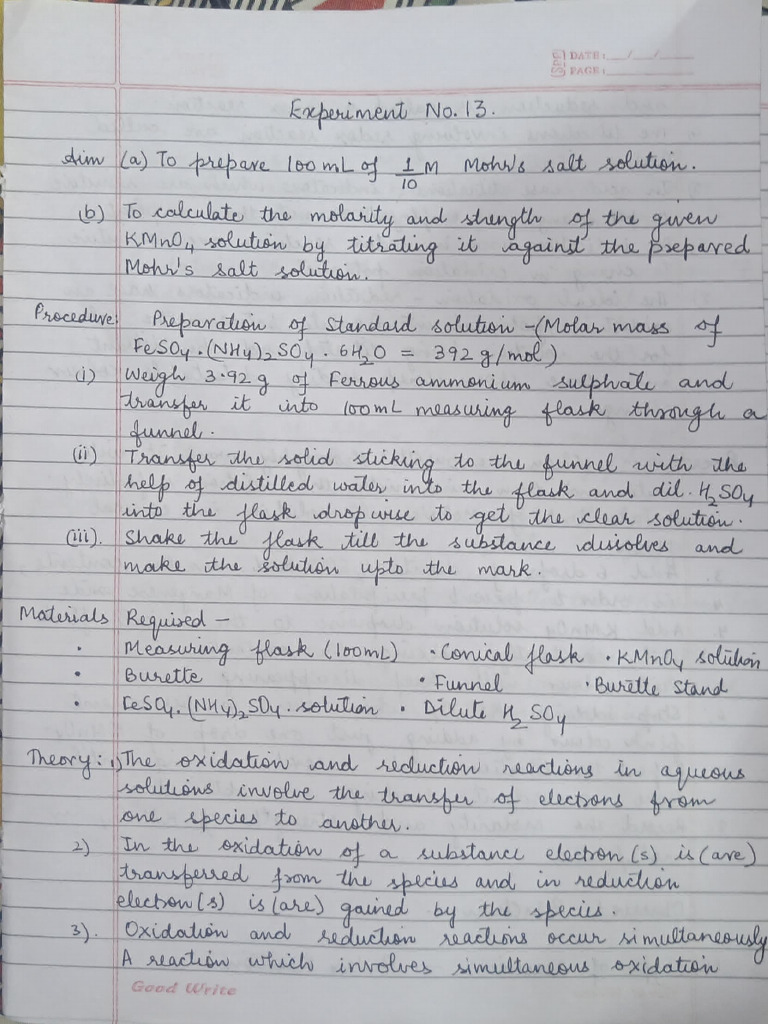 DATE: __/__/__
PAGE: ______
Experiment No. 13.
Aim (a) To prepare 100 mL of 1/10 M Mohr's salt solution.
(b) To calculate the molarity and strength of the given
KMnO₄ solution by titrating it against the prepared
Mohr's salt solution.
Procedure: Preparation of Standard solution - (Molar mass of
FeSO₄.(NH₄)₂SO₄.6H₂O = 392 g/mol)
(i) Weigh 3.92 g of Ferrous ammonium sulphate and
transfer it into 100mL measuring flask through a
funnel.
(ii) Transfer the solid sticking to the funnel with the
help of distilled water into the flask and dil. H₂SO₄
into the flask dropwise to get the clear solution.
(iii). Shake the flask till the substance dissolves and
make the solution upto the mark.
Materials Required -
• Measuring flask (100mL) • Conical flask • KMnO₄ solution
• Burette • Funnel • Burette Stand
• FeSO₄.(NH₄)₂SO₄.solution • Dilute H₂SO₄
Theory: 1) The oxidation and reduction reactions in aqueous
solutions involve the transfer of electrons from
one species to another.
2) In the oxidation of a substance electron (s) is (are)
transferred from the species and in reduction
electron (s) is (are) gained by the species.
3). Oxidation and reduction reactions occur simultaneously
A reaction which involves simultaneous oxidation
Good Write